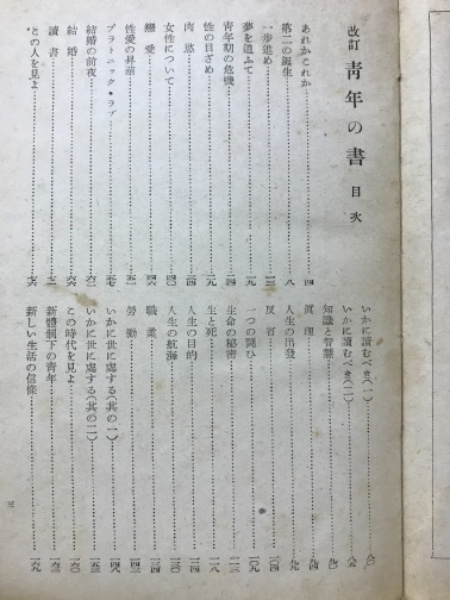 改訂 靑年の書 目次
あれかこれか……四
第二の誕生……八
一步進め……一三
夢を追ふて……一九
靑年期の危機……二四
性の目ざめ……二九
肉慾……三四
女性について……四〇
戀愛……四六
性愛の昇華……五一
プラトニック・ラブ……五七
結婚の前夜……六二
結婚……六六
讀書……七一
この人を見よ……七六
いかに讀むべき(一)……八〇
いかに讀むべき(二)……八六
知識と智慧……九〇
眞理……九四
人生の出發……九九
反省……一〇四
一つの闘ひ……一〇九
生命の祕密……一一三
生と死……一一八
人生の目的……一二四
人生の航海……一三〇
職業……一三四
勞働……一四三
いかに世に處する(其の一)……一四八
いかに世に處する(其の二)……一五三
この時代を見よ……一六〇
新體制下の靑年……一六三
新しい生活の信條……一六九